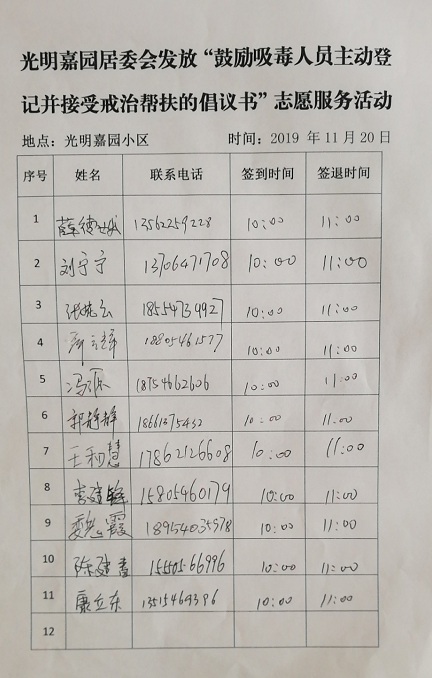 光明嘉园居委会发放“鼓励吸毒人员主动登
记并接受戒治帮扶的倡议书”志愿服务活动
地点：光明嘉园小区 时间：2019 年 11 月 20 日
序号 姓名 联系电话 签到时间 签退时间
1 13562259228 10:00 11:00
2 刘宁宁 13706471708 10:00 11:00
3 18554739927 10:00 11:00
4 18805461577 10:00 11:00
5 18754662606 10:00 11:00
6 郭静静 18661375432 10:00 11:00
7 王和慧 17862126608 10:00 11:00
8 15805460179 10:00 11:00
9 18954035978 10:00 11:00
10 15550566996 10:00 11:00
11 康立东 13515469396 10:00 11:00
12